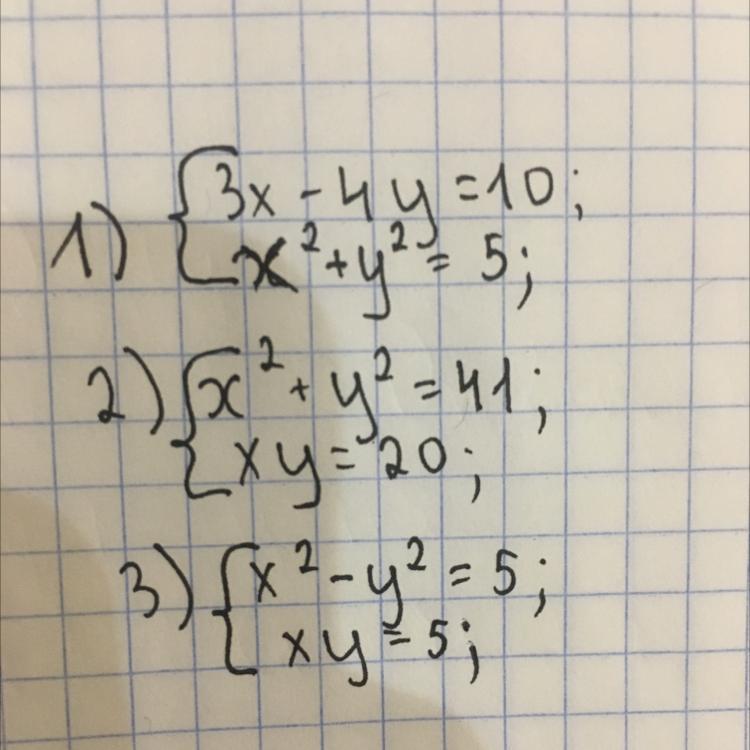 1) { 3x - 4y = 10;
x² + y² = 5;
2) { x² + y² = 41;
xy = 20;
3) { x² - y² = 5;
xy = 5;